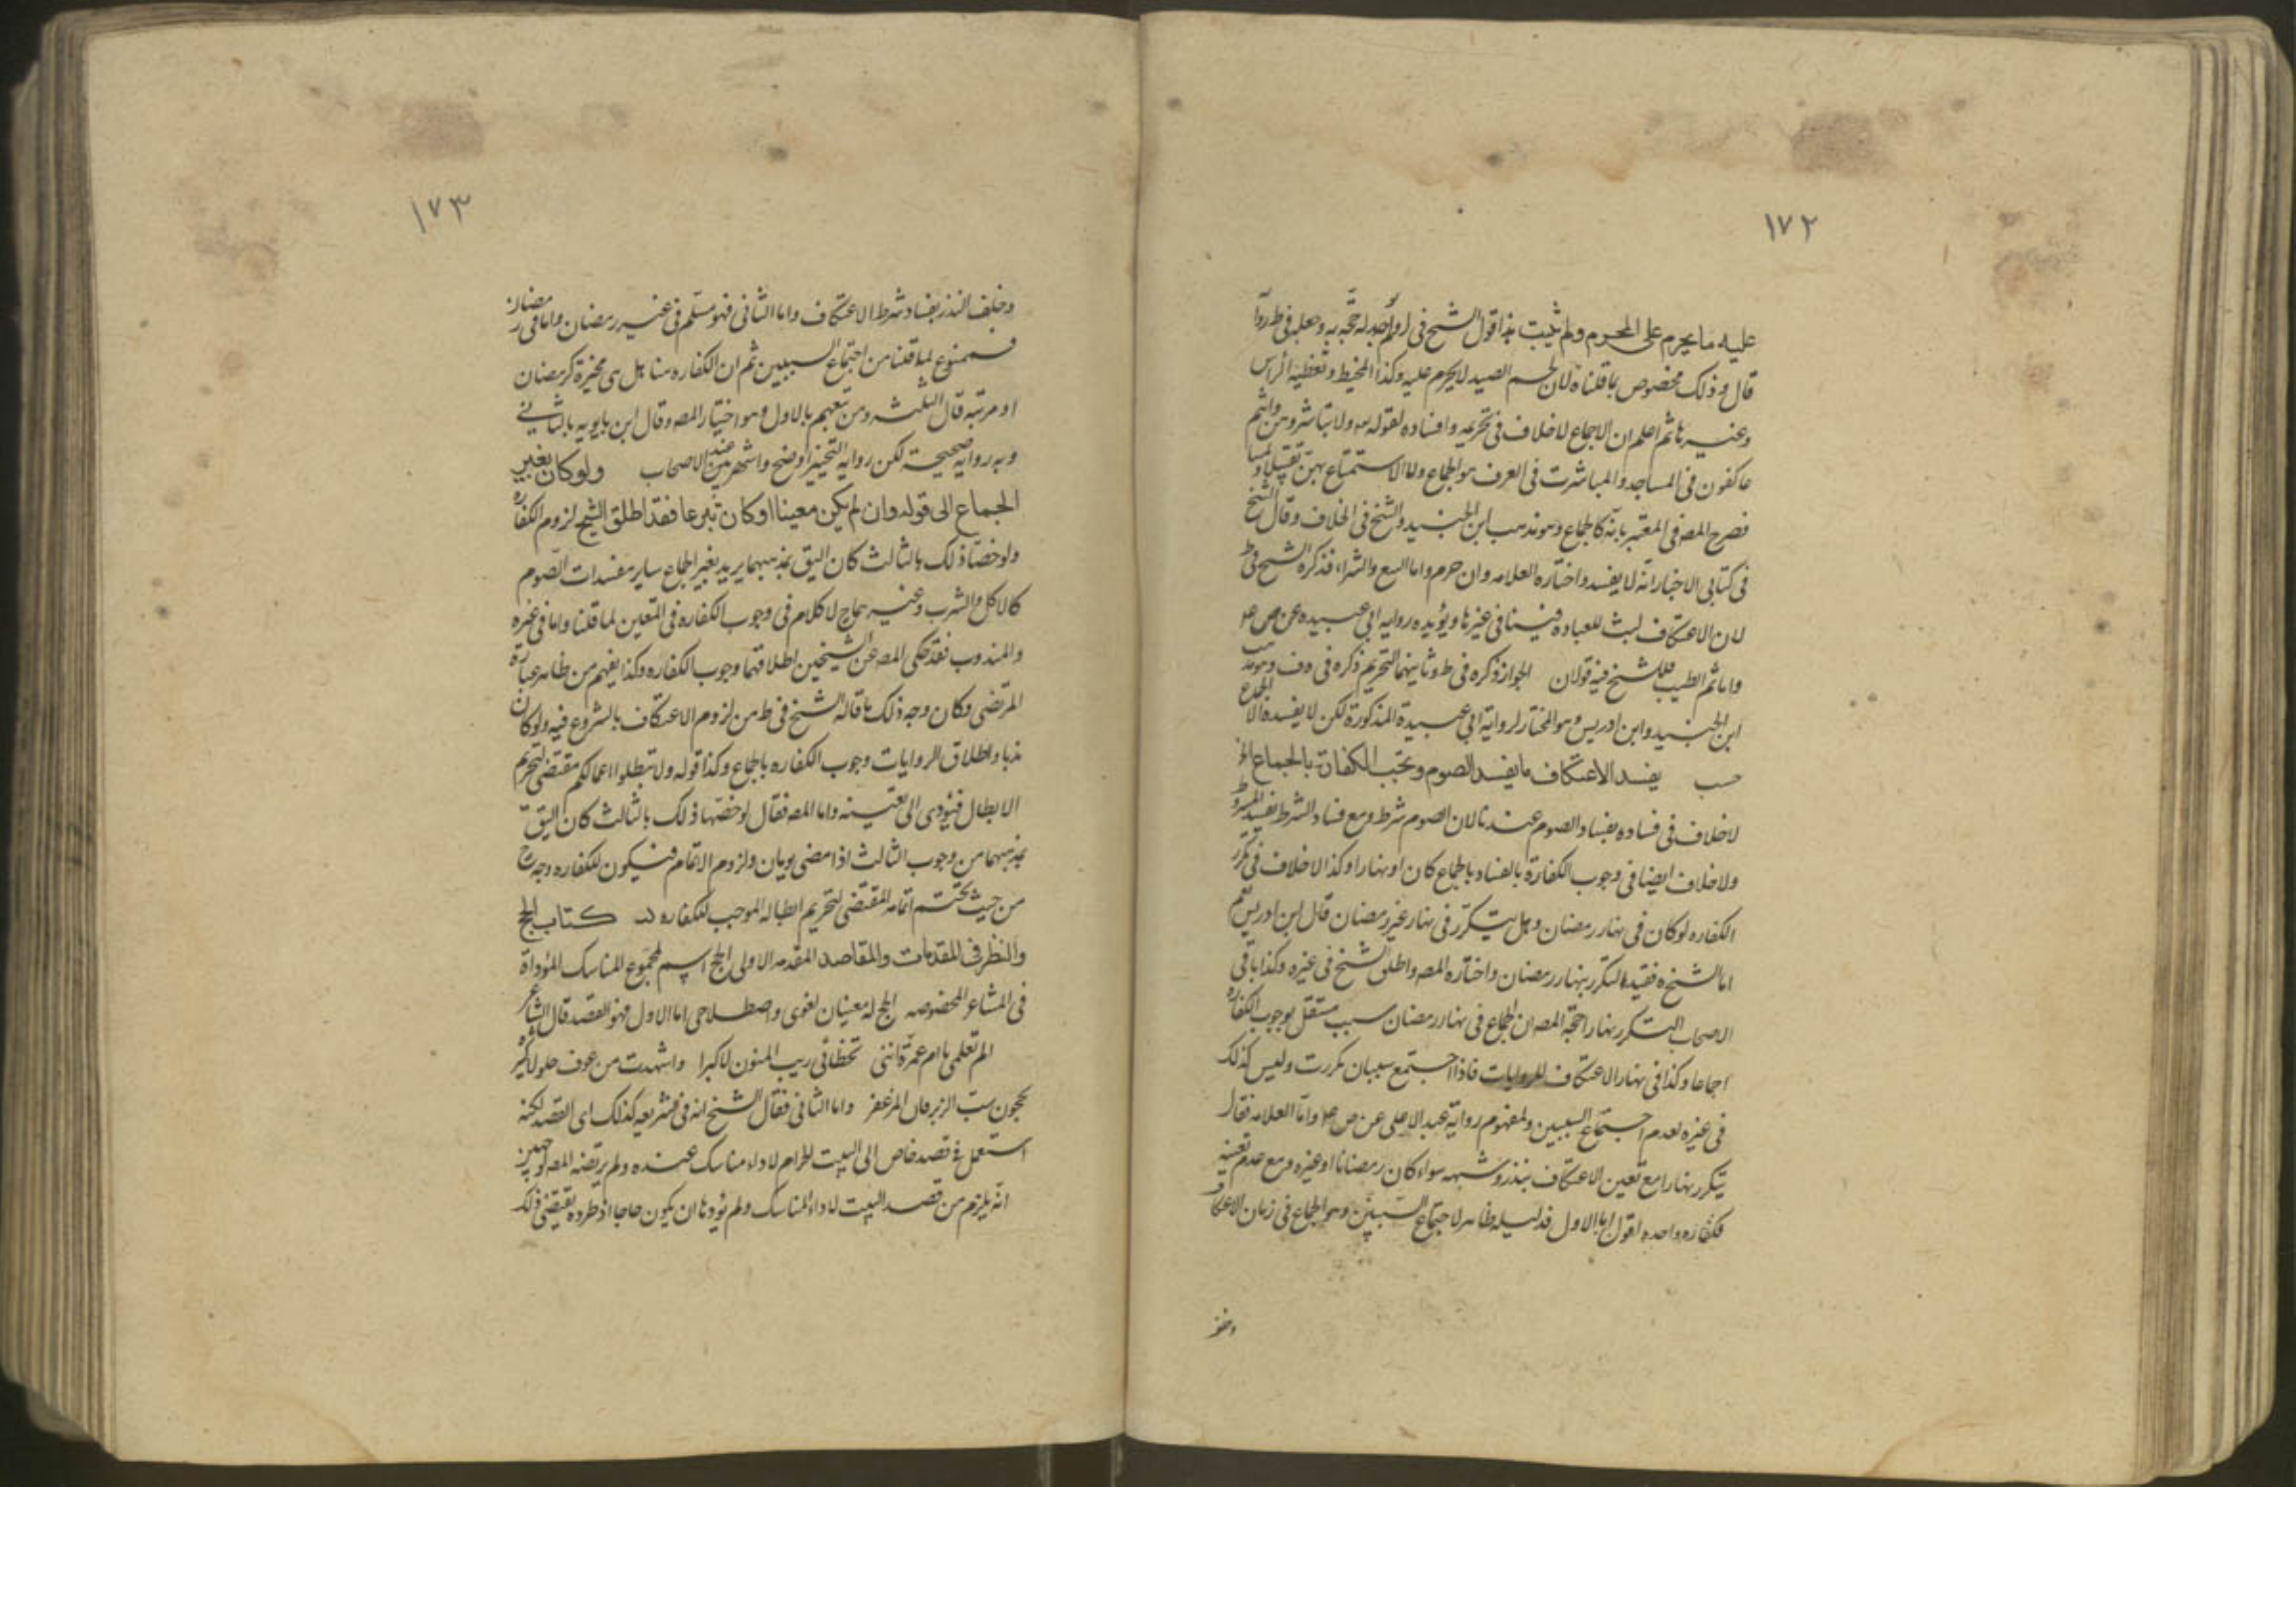 ١٧٢
عليه ما يحرم على المحرم ولم يثبت هذا قول الشيخ في ولم اجد له حجة به وجعله في ط روايا
قال وذلك مخصوص بما قلناه لان لحم الصيد لا يحرم عليه وكذا المخيط وتغطية الراس
وغيرها ثم اعلم ان الاجماع لا خلاف في تحريمه وافساده لقوله ولا تباشروهن وانتم
عاكفون في المساجد والمباشرت في العرف هو الجماع واما الاستمتاع بهن تقبيلا ولمسا
فصرح المصـ في المعتبر بانه كالجماع وهو مذهب ابن الجنيد والشيخ في الخلاف وقال الشيخ
في كتابي الاخبار انه لا يفسد واختاره العلامه وان حرم واما البيع والشراء فذكره الشيخ في ط
لان الاعتكاف لبث للعبادة فينافي غيرها ويؤيده رواية ابي عبيده عن ص ع
واما شم الطيب فللشيخ فيه قولان الجواز ذكره في ط وثانيهما التحريم ذكره في وهو مذهب
ابن الجنيد وابن ادريس وهو المختار لرواية ابي عبيدة المذكورة لكن لا يفسده الا الجماع
حسب يفسد الاعتكاف ما يفسد الصوم وتجب الكفارة بالجماع الخ
لا خلاف في فساده بفساد الصوم عندنا لان الصوم شرط ومع فساد الشرط يفسد المشروط
ولا خلاف ايضا في وجوب الكفارة بالفساد بالجماع كان او نهارا وكذا لا خلاف في تكرر
الكفاره لو كان في نهار رمضان وهل يتكرر في نهار غير رمضان قال ابن ادريس نعم
اما الشيخ ره فقيد التكرر بنهار رمضان واختاره المصـ واطلق الشيخ في غيره وكذا باقي
الاصحاب التكرر نهارا حجة المصـ ان الجماع في نهار رمضان سبب مستقل بوجوب الكفاره
اجماعا وكذا في نهار الاعتكاف للروايات فاذا اجتمع سببان تكررت وليس كذلك
في غيره لعدم اجتماع السببين ولمفهوم رواية عبد الاعلى عن ص ع واما العلامه فقال
يتكرر نهارا مع تعين الاعتكاف بنذر وشبهه سواء كان رمضانا او غيره ومع عدم تعينه
فكفاره واحده اقول اما الاول فدليله ظاهر لاجتماع السببين وهو الجماع في زمان الاعتكاف
١٧٣
وخلف النذر بفساد شرط الاعتكاف واما الثاني فهو مسلم في غير رمضان واما في رمضان
فممنوع لما قلنا من اجتماع السببين ثم ان الكفاره هنا هل هي مخيرة كرمضان
او مرتبه قال الثلثه ومن تبعهم بالاول وهو اختيار المصـ وقال ابن بابويه بالثاني
وبه رواية صحيحة لكن رواية التخيير اوضح واشهر عند الاصحاب ولو كان بغير
الجماع الى قوله وان لم يكن معينا او كان تبرعا فقد اطلق الشيخ لزوم الكفاره
ولو خصا ذلك بالثالث كان اليق بمذهبهما يريد بغير الجماع ساير مفسدات الصوم
كالاكل والشرب وغيرهما لا كلام في وجوب الكفاره في المتعين لما قلنا واما في غيره
والمندوب فقد حكى المصـ عن الشيخين اطلاقهما وجوب الكفاره وكذا يفهم من ظاهر عبارة
المرتضى وكان وجه ذلك ما قاله الشيخ في ط من لزوم الاعتكاف بالشروع فيه ولو كان
ندبا واطلاق الروايات وجوب الكفاره بالجماع وكذا قوله ولا تبطلوا اعمالكم مقتضى لتحريم
الابطال فيؤدى الى تعينه واما المصـ فقال لو خصا ذلك بالثالث كان اليق
بمذهبهما من وجوب الثالث اذا مضى يومان ولزوم الاتمام فيكون للكفاره وجه ح
من حيث تحتم اتمامه المقتضى لتحريم ابطاله الموجب للكفاره كتاب الحج
والنظر في المقدمات والمقاصد المقدمه الاولى الحج اسم لمجموع المناسك المؤداة
في المشاعر المخصوصه الحج له معنيان لغوى واصطلاحى اما الاول فهو القصد قال الشاعر
الم تعلمى يا ام عمرة اننى تخطائى ريب المنون لاكبرا واشهدت من عوف حلولا كثيرة
يحجون سب الزبرقان المزعفر واما الثاني فقال الشيخ انه في الشريعه كذلك اى القصد لكنه
استعمل في قصد خاص الى البيت الحرام لاداء مناسك عنده ولم يرتضه المصـ لوجهين
انه يلزم من قصد البيت لاداء المناسك ولم يؤدها ان يكون حاجا اذ طرده يقتضى ذلك